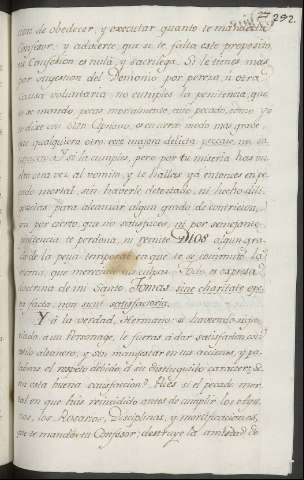 292.
cion de obedecer, y executar quanto te mandare el
Confesor; y advierte, que si te falta este proposito,
tu Confesion es nula, y sacrilega. Si le tienes, mas
por sugestion del Demonio, por pereza, ù otra
causa voluntaria no cumples la penitencia, que
se te mandò, pecas mortalmente, cuio pecado, como ya
te dixe con San Cypriano, es en cierto modo mas grave,
que qualquiera otro
si la cumples, pero por tu miseria has vu
elto otra vez al vomito, y te hallas ya entonces en pe
cado mortal, sin haverle detestado, ni hecho dili
gencias para alcanzar algun grado de contricion,
ten por cierto, que no satisfaces, ni por semejante
penitencia te perdona, ni remite DIOS algun gra
do de la pena temporal, en que te se conmutò la
eterna, que merecian tus culpas. Todo es expresa
doctrina de mi Santo Tomas sine charitate ope
ra facta, non sunt satisfactoria.
Y à la verdad, Hermano: si haviendo injur
iado à un Personage, le fueras à dar satisfaccion con
estilo altanero, y con manifestar en tus acciones, y pa
labras el respeto debido, à su distinguido caracter, se
rìa esta buena satisfaccion? Pues si el pecado mor
tal en que has reincidido antes de cumplir los ayu
nos, los Rosarios, Disciplinas, y mortificaciones,
que te mandò tu Confesor, destruye la amistad de